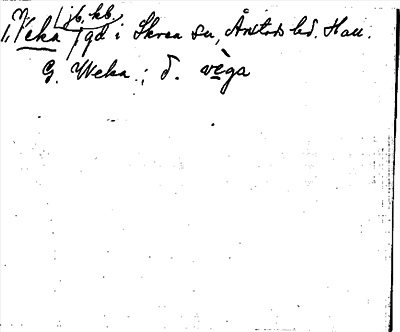 jb. kb.
1, Veka gd i Skrea sn, Årstads hd. Hall.
G. Weka ; d. vèga